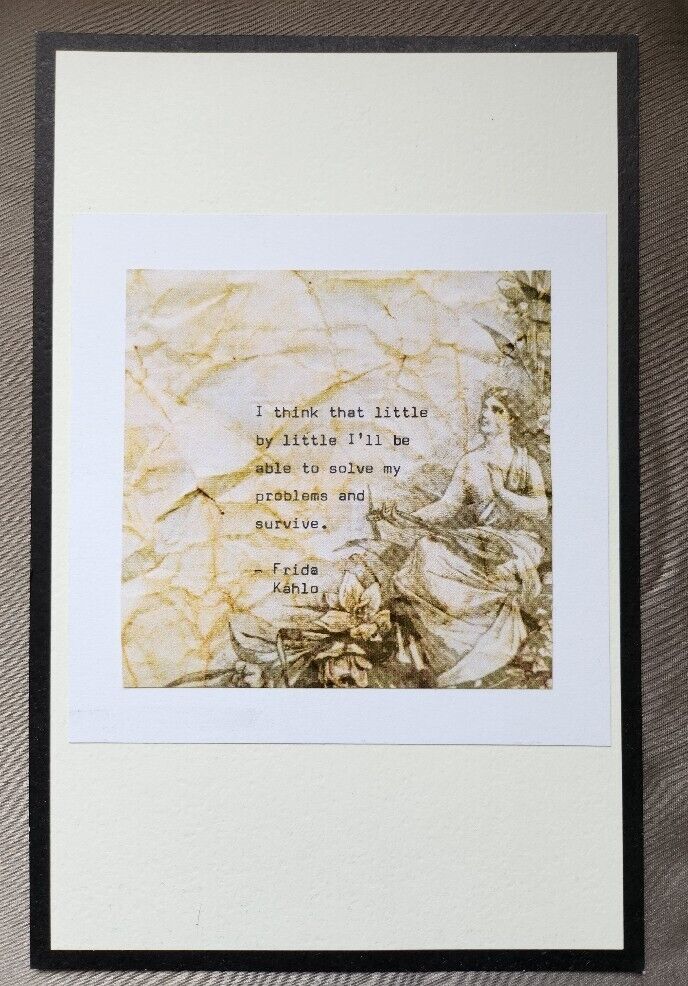 I think that little
by little I'll be
able to solve my
problems and
survive.
- Frida
Kahlo